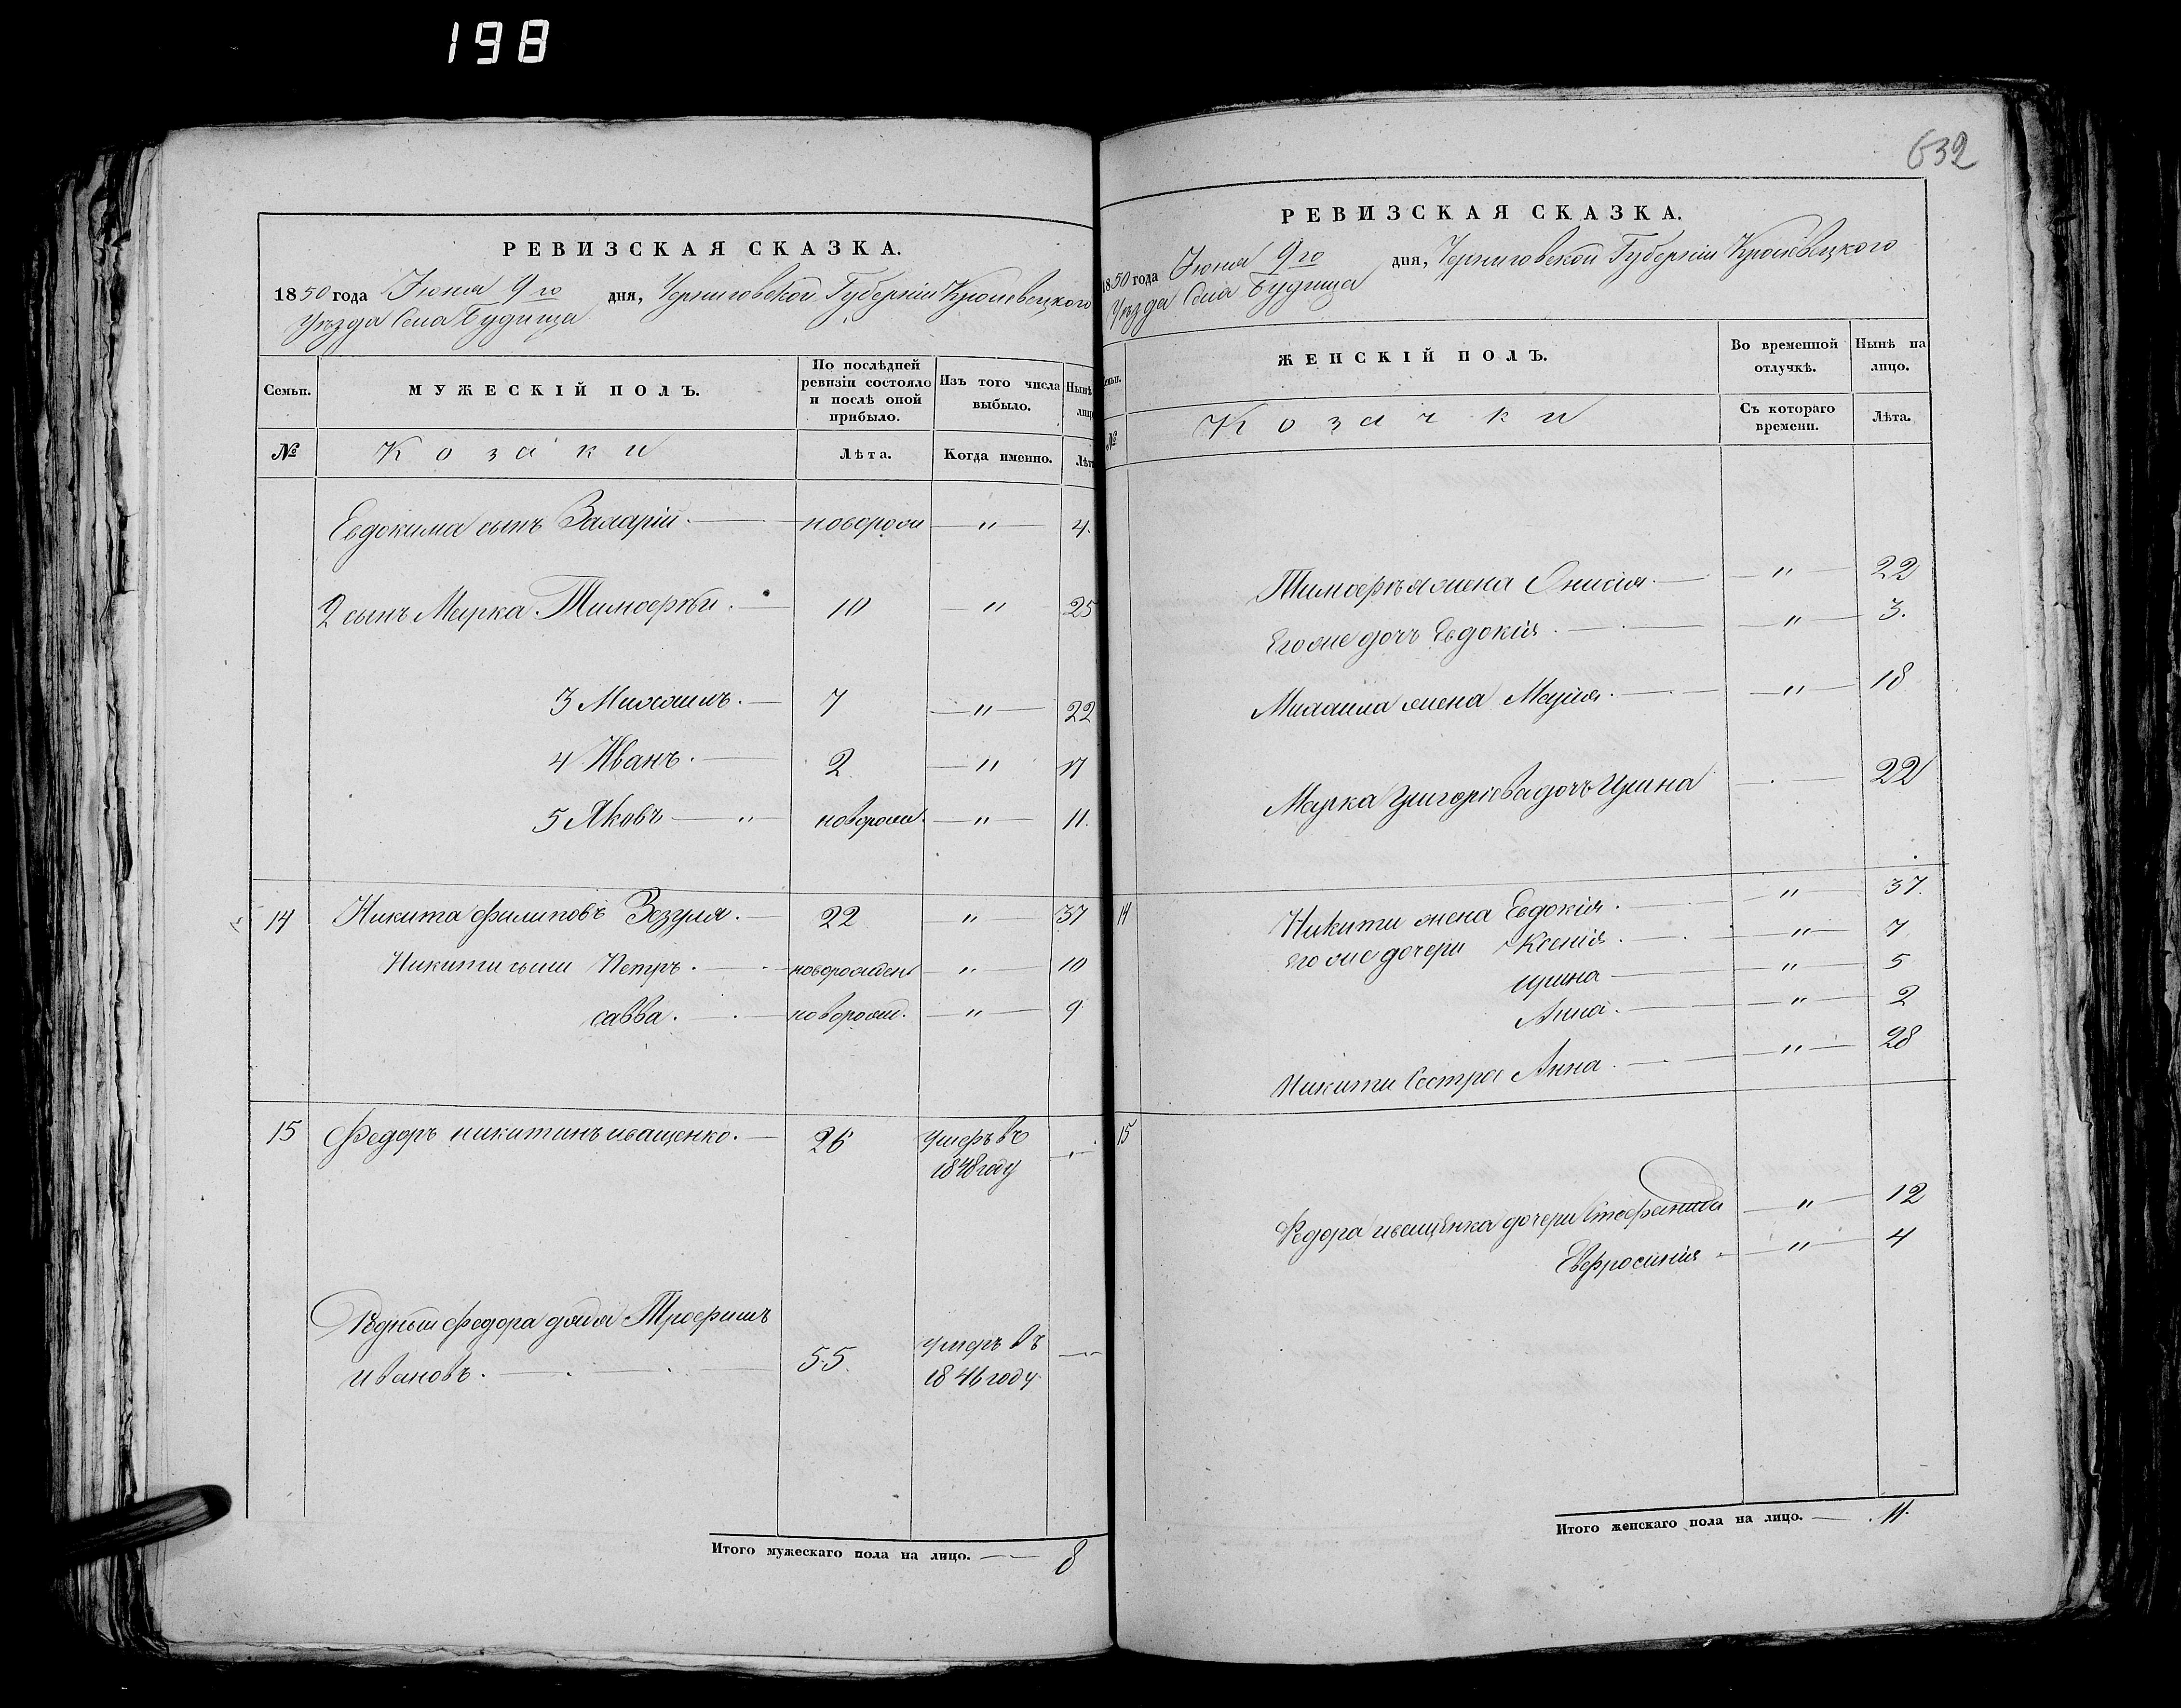 198
РЕВИЗСКАЯ СКАЗКА.
1850 года Июня 9го дня, Черниговской Губерніи Кролевецкого
Уѣзда Села Будища
Семьи.
МУЖЕСКІЙ ПОЛЪ.
По послѣдней ревизіи состояло и послѣ оной прибыло.
Изъ того числа выбыло.
Нынѣ
лицо
№
Козаки
Лѣта.
Когда именно.
Лѣта
Евдокима сынъ Захарій. новорож " 4.
2 сынъ Марка Тимофѣй. 10 " 25
3 Михаилъ. 7 " 22
4 Иванъ. 2 " 17
5 Яковъ " новорожд. " 11.
14 Никита Филиповъ Зозуля. 22 " 37
Никити сыни Петръ. новорожден " 10
савва. новорожд. " 9
15 Федоръ никитинъ иващенко. 26 умеръ въ
1848 году
Родный Федора дядя Трофимъ
ивановъ. 55. умеръ въ
1846 году
Итого мужескаго пола на лицо. 8
632
РЕВИЗСКАЯ СКАЗКА.
1850 года Июня 9го дня, Черниговской Губерніи Кролевецкого
Уѣзда Села Будища
Семьи.
ЖЕНСКІЙ ПОЛЪ.
Во временной отлучкѣ.
Нынѣ на лицо.
№
Козачки
Съ котораго времени.
Лѣта.
Тимофѣя жена Онисія. " 22
Его же дочъ Евдокія. " 3.
Михаила жена Марія. " 18
Марка Григоріева дочъ Ирина 22
14 Никити жена Евдокія. " 37.
его же дочери Ксенія. " 7
ирина " 5
Анна. " 2
Никити Сестра Анна. " 28
15
Федора иващенка дочери Стефанида " 12
Евфросинія " 4
Итого женскаго пола на лицо. 11.